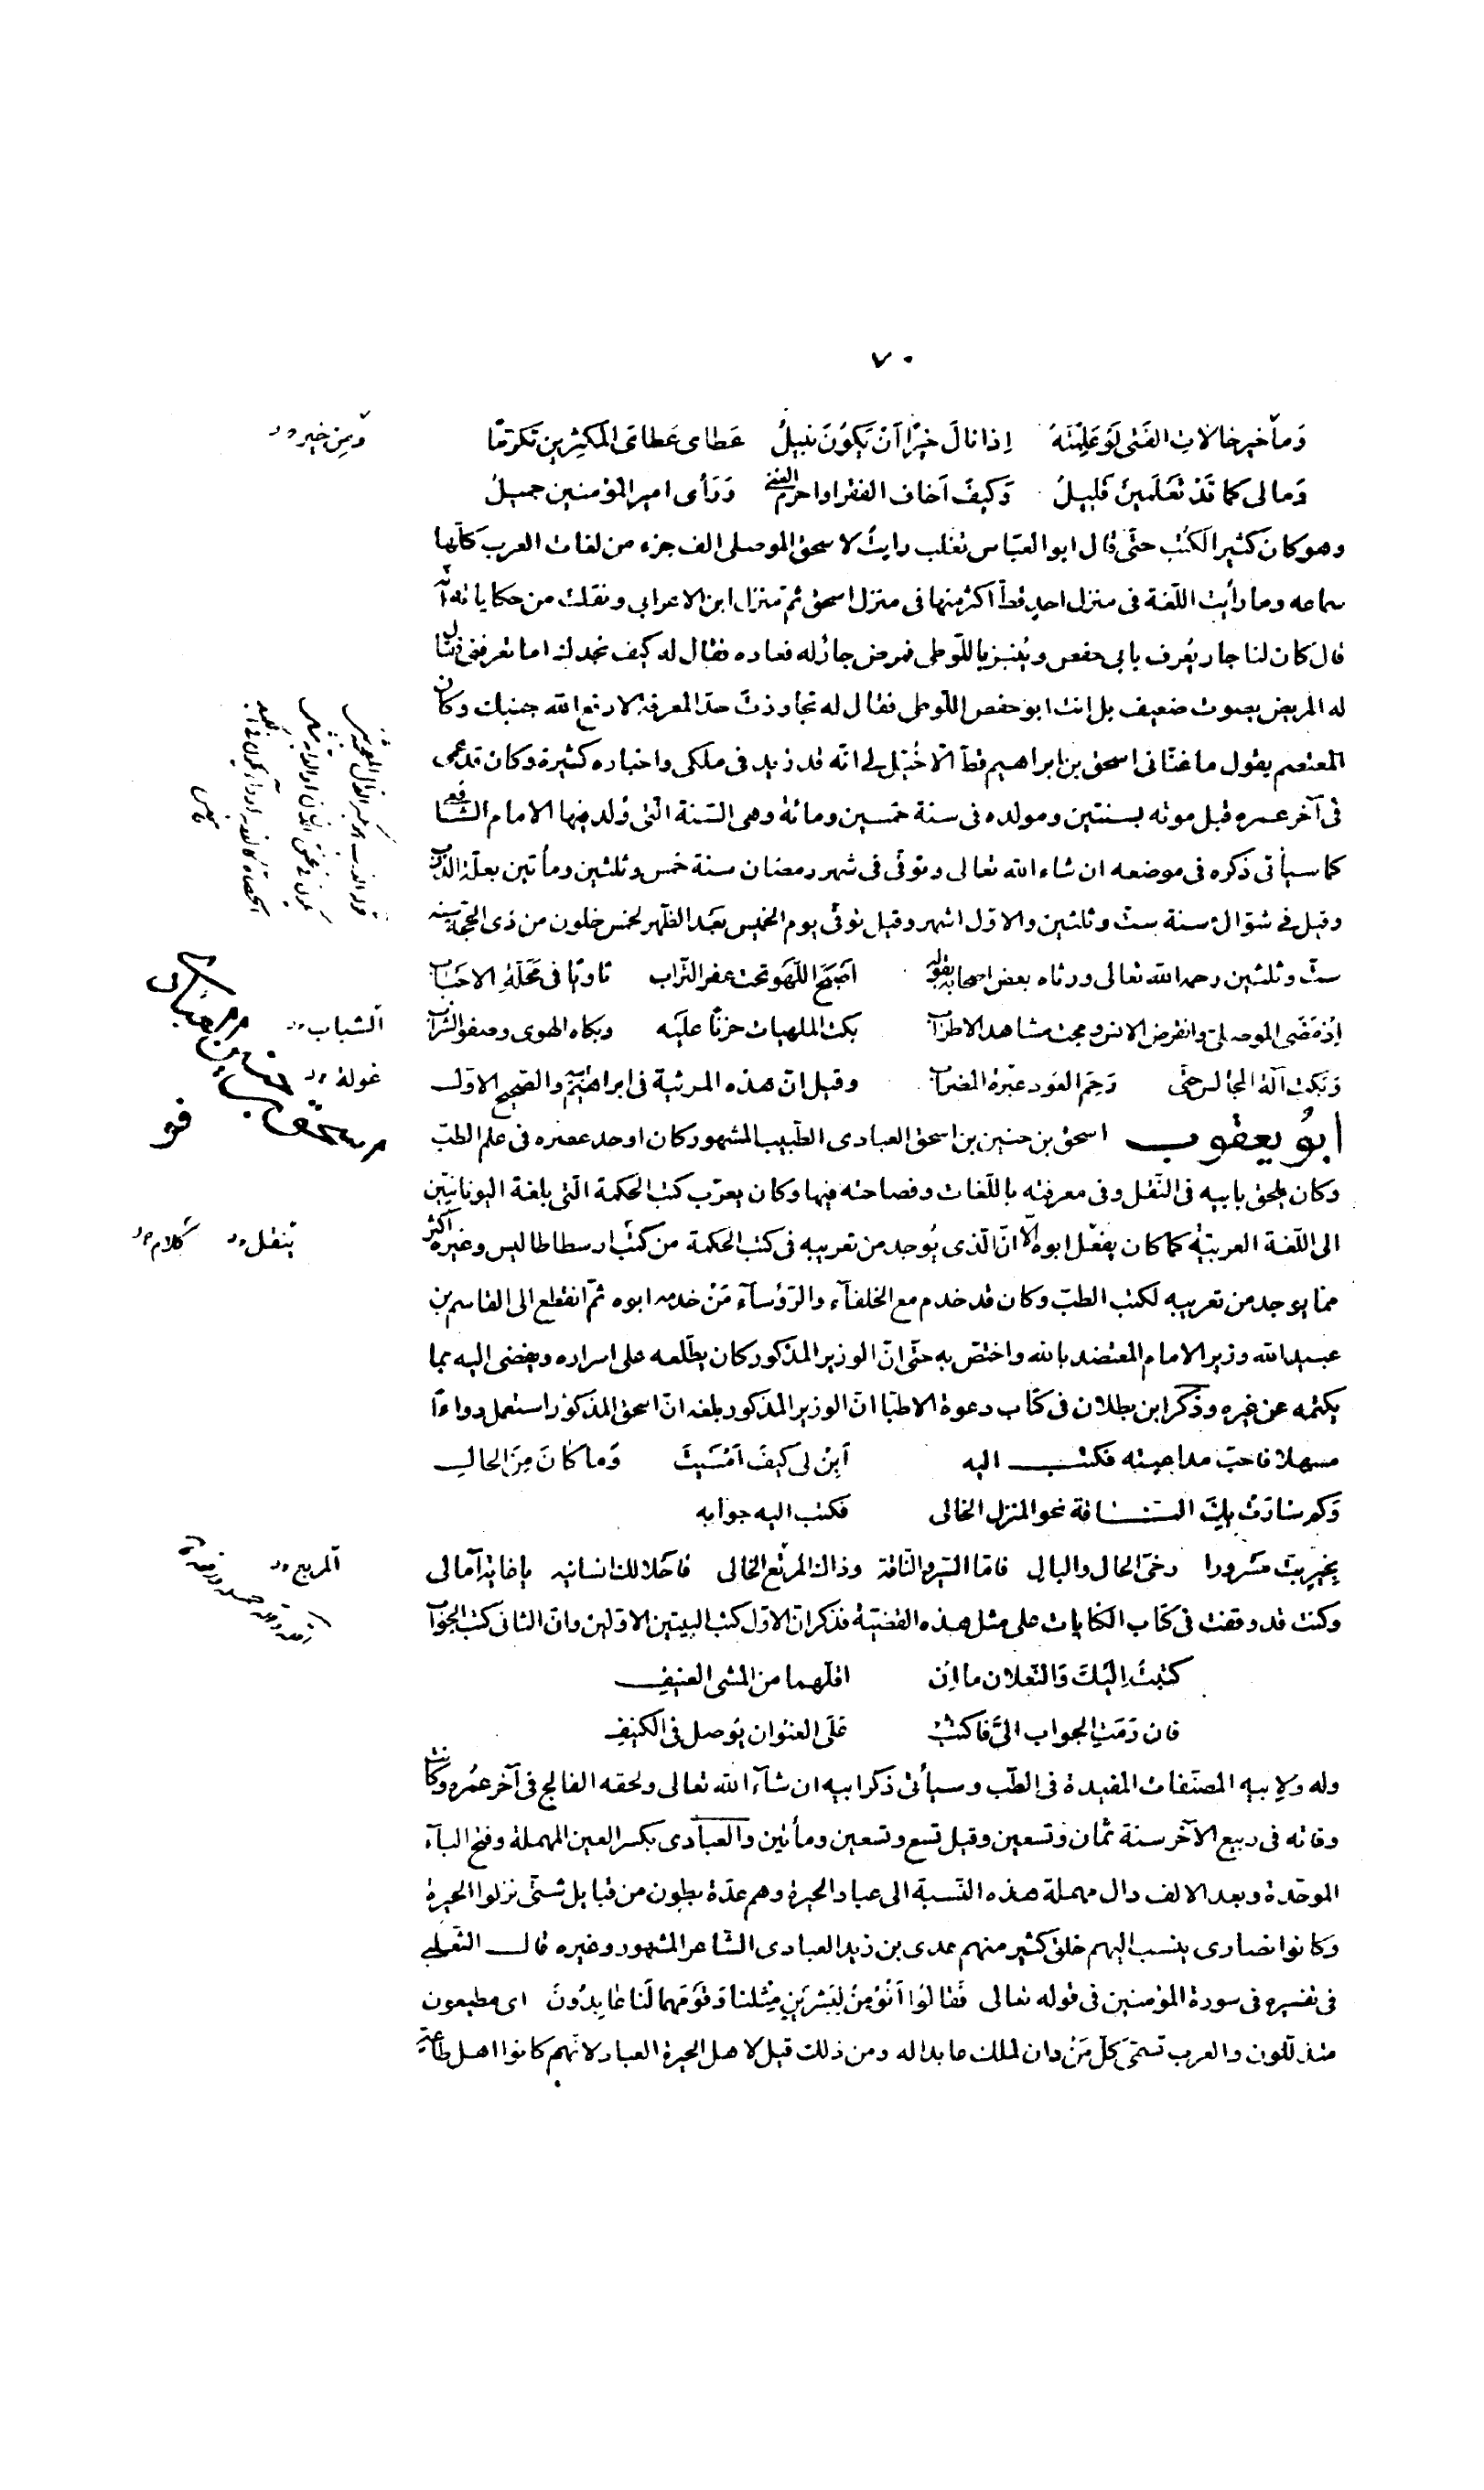 ٧٠
وَما خير حالات الفتى لو علمته اذا نال خيرًا أن يكون نبيلُ عطاى عطاء المكثرين تكرّمًا
وَمالى كما قد تعلمين قليلُ وَكيف اخاف الفقر او احرم الغنى وَرأى امير المؤمنين جميلُ
وهو كان كثير الكتب حتّى قال ابو العبّاس ثعلب رايت لاسحق الموصلى الف جزء من لغات العرب كلّها
سماعه وما رأيت اللّغة فى منزل احدٍ قطّ اكثر منها فى منزل اسحق ثمّ منزل ابن الاعرابى ونقلت من حكاياته انّه
قال كان لنا جار يُعرف بابى حفص ويُنبز باللّوطى فمرض جار له فعاده فقال له كيف تجدك اما تعرفنى فقال
له المريض بصوت ضعيف بلى انت ابو حفص اللّوطى فقال له تجاوزت حدّ المعرفة لا رفع الله جنبك وكان
المعتصم يقول ما غنّانى اسحق بن ابراهيم قطّ الّا خُيّل لى انّه قد زيد فى ملكى واخباره كثيرة وكان قد عمى
فى آخر عمره قبل موته بسنتين ومولده فى سنة خمسين ومائة وهى السّنة الّتى وُلد فيها الامام الشّافعى
كما سيأتى ذكره فى موضعه ان شاء الله تعالى وتوفّى فى شهر رمضان سنة خمس وثلثين ومأتين بعلّة الذّرب
وقيل فى شوّال سنة ستّ وثلثين والاوّل اشهر وقيل توفّى يوم الخميس بعد الظّهر لخمس خلون من ذى الحجّة سنة
ستّ وثلثين رحمه الله تعالى ورثاه بعض اصحابه بقوله اصبح اللّهو تحت عفر التّراب ثاويًا فى محلّة الاحباب
اذ مضى الموصلىّ وانقرض الانس ومجت مشاهد الاطراب بكت الملهيات حزنًا عليه وبكاه الهوى وصفو الشّراب
وَبكت آلة المجالس حتّى رَحِم العود عبرة المضراب وقيل انّ هذه المرثية فى ابراهيم والصّحيح الاوّل
ابُو يعقوب اسحق بن حنين بن اسحق العبادى الطّبيب المشهور كان اوحد عصره فى علم الطبّ
وكان يلحق بابيه فى النّقل وفى معرفته باللّغات وفصاحته فيها وكان يعرّب كتب الحكمة الّتى بلغة اليونانيّين
الى اللّغة العربيّة كما كان يفعل ابوه الّا انّ الّذى يُوجد من تعريبه فى كتب الحكمة من كتب ارسطاطاليس وغيره اكثر
ممّا يوجد من تعريبه لكتب الطبّ وكان قد خدم مع الخلفآء والرّؤسآء مَن خدمه ابوه ثمّ انقطع الى القاسم بن
عبيدالله وزير الامام المعتضد بالله واختصّ به حتّى انّ الوزير المذكور كان يطّلعه على اسراره ويفضى اليه بما
يكتمه عن غيره وذكر ابن بطلان فى كتاب دعوة الاطبّا انّ الوزير المذكور بلغه انّ اسحق المذكور استعمل دواءً
مسهلا فاحبّ مداعبته فكتب اليه اَبِن لى كيف اَمسَيتَ وَما كانَ مِنَ الحالِ
وَكم سارَتْ بِكَ النّاقة نحو المنزل الخالى فكتب اليه جوابه
بخيرٍ بتّ مَسرورا رخىّ الحال والبالِ فامّا السّير والنّاقة وذاك المربع الخالى فاجلالك انسانيه ياغاية آمالى
وكنت قد وقفت فى كتاب الكنايات على مثل هذه القضيّة فذكر انّ الاوّل كتب البيتين الاوّلين وانّ الثانى كتب الجواب
كتبتُ اِلَيكَ وَالنّعلان ما اِن اقلّهما من المشى العنيفِ
فان رُمتَ الجواب الىَّ فاكتب عَلَى العنوان يُوصل فى الكنيفِ
وله ولابيه المصنّفات المفيدة فى الطّب وسيأتى ذكر ابيه ان شآء الله تعالى ولحقه الفالج فى آخر عُمره وكانت
وفاته فى ربيع الآخر سنة ثمان وتسعين وقيل تسع وتسعين ومأتين والعبادى بكسر العين المهملة وفتح البآء
الموحّدة وبعد الالف دال مهملة هذه النّسبة الى عباد الحيرة وهم عدّة بطون من قبايل شتّى نزلوا الحيرة
وكانوا نصارى ينسب اليهم خلق كثير منهم عدى بن زيد العبادى الشّاعر المشهور وغيره قال الثّعلبى
فى تفسيره فى سورة المؤمنين فى قوله تعالى فَقالُوا اَنُؤمِنُ لِبَشَرَينِ مِثلِنا وَقَومُهما لَنا عابِدُونَ اى مطيعون
متذلّلون والعرب تسمّى كلّ مَن دان لملك عابدا له ومن ذلك قيل لاهل الحيرة العباد لانّهم كانوا اهل طاعة
وَمِن خير
الشباب
غولة
ينقل كلام
المربع